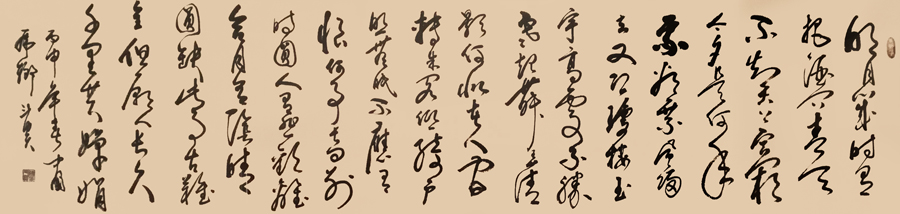 明月几时有
把酒问青天
不知天上宫阙
今夕是何年
我欲乘风归
去又恐琼楼玉
宇高处不胜
寒起舞弄清
影何似在人间
转朱阁低绮户
照无眠不应有
恨何事长向别
时圆人有悲欢离
合月有阴晴
圆缺此事古难
全但愿人长久
千里共婵娟
丙申年春中国